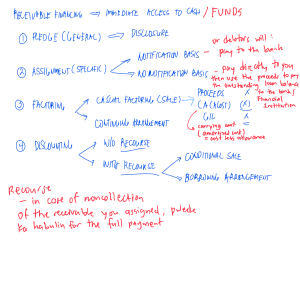 RECEIVABLE FINANCING => IMMEDIATE ACCESS TO CASH / FUNDS
① PLEDGE (GENERAL) => DISCLOSURE
② ASSIGNMENT (SPECIFIC)
NOTIFICATION BASIS
NO NOTIFICATION BASIS
or debtors will:
- pay to the bank
- pay directly to you
then use the proceeds to pay
the outstanding loan balance
to the bank/
Financial
Institution
③ FACTORING
CASUAL FACTORING (SALE)
CONTINUING ARRANGEMENT
PROCEEDS X
CA (AC&T) X
G/L X
carrying amt =
(amortized cost)
= cost less allowance
④ DISCOUNTING
W/O RECOURSE
WITH RECOURSE
CONDITIONAL SALE
BORROWING ARRANGEMENT
Recourse
- in case of noncollection
of the receivable you assigned, pwede
ka habulin for the full payment